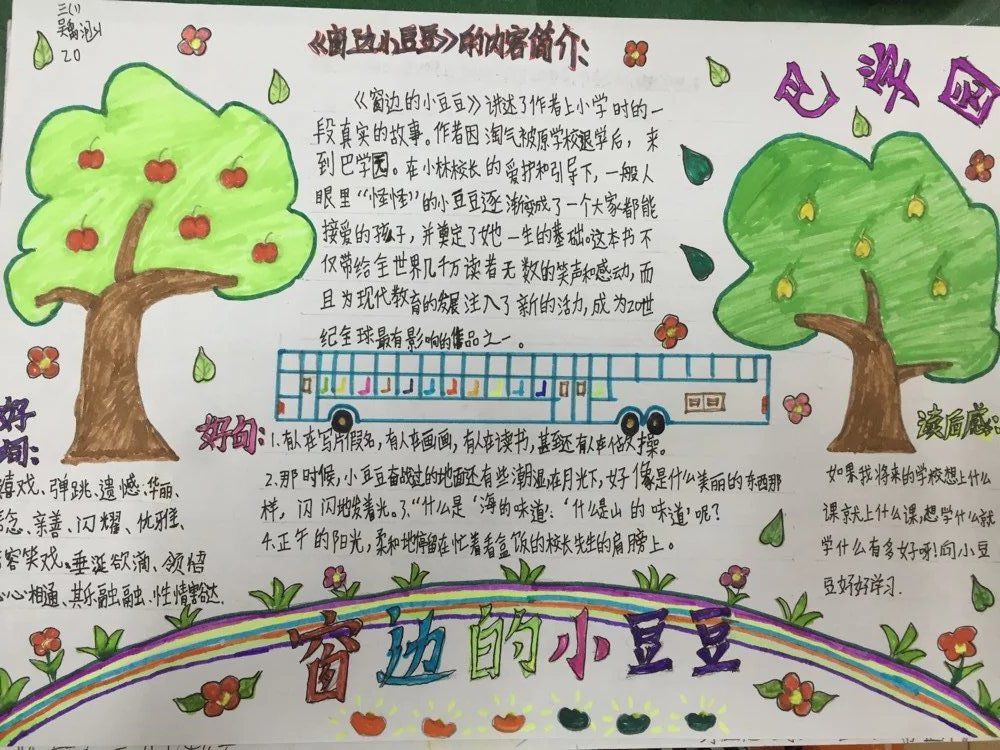 三(1)
20
《窗边小豆豆》的内容简介:
巴学园
《窗边的小豆豆》讲述了作者上小学时的一
段真实的故事。作者因淘气被原学校退学后，来
到巴学园。在小林校长的爱护和引导下，一般人
眼里“怪怪”的小豆豆逐渐变成了一个大家都能
接受的孩子，并奠定了她一生的基础。这本书不
仅带给全世界几千万读者无数的笑声和感动，而
且为现代教育的发展注入了新的活力，成为20世
纪全球最有影响的作品之一。
好
词:
嘻戏、弹跳、遗憾、华丽、
念、亲善、闪耀、优雅、
容笑戏。垂涎欲滴、领悟
心心相通、其乐融融、性情豁达.
好句:
1.有人在写片假名，有人在画画，有人在读书，甚至还有人在做体操。
2.那时候，小豆豆站过的地面还有些潮湿,在月光下,好像是什么美丽的东西那
样，闪闪地发着光。3.“什么是‘海的味道’:“什么是山的味道’呢？
4.正午的阳光，柔和地停留在忙着看盒饭的校长先生的肩膀上。
读后感:
如果我将来的学校想上什么
课就上什么课,想学什么就
学什么有多好呀!向小豆
豆好好学习.
窗边的小豆豆